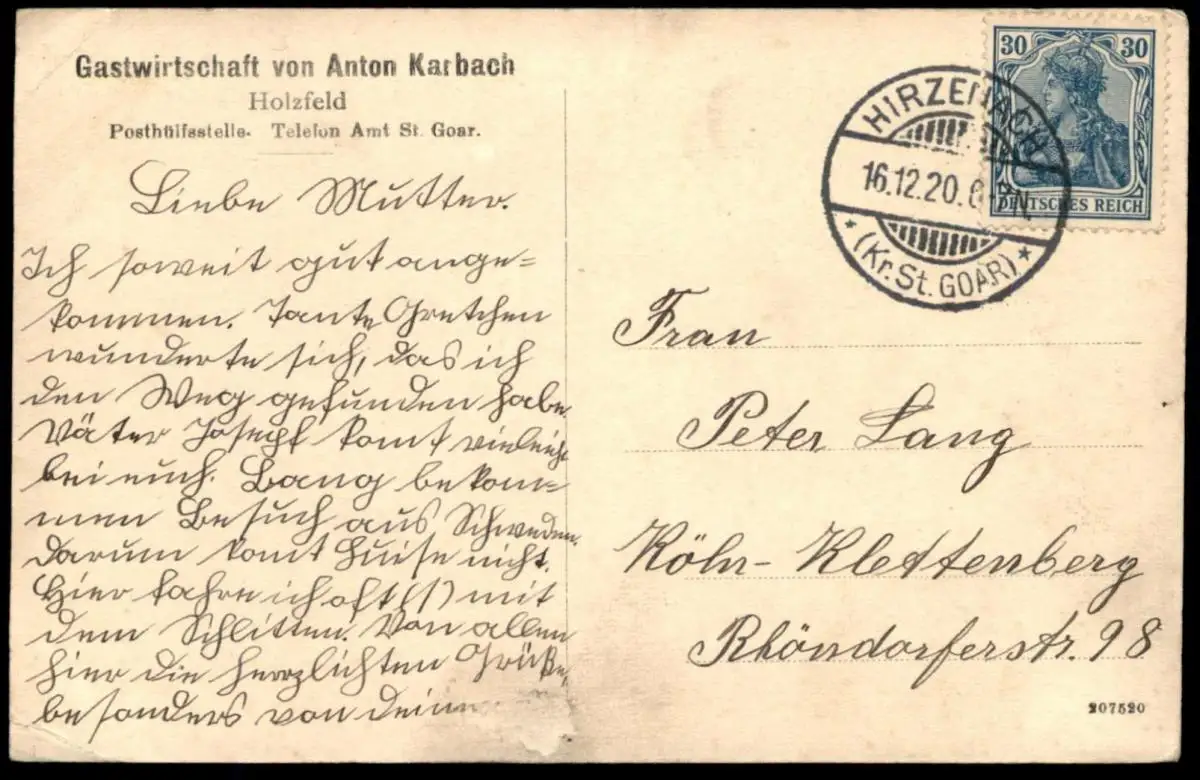 Gastwirtschaft von Anton Karbach
Holzfeld
Posthülfsstelle. Telefon Amt St. Goar.
Liebe Mutter.
Ich soweit gut ange=
kommen. Tante Gretchen
wunderte sich, das ich
den Weg gefunden habe.
Väter Josepf komt vieleicht
bei euch. Bang bekom=
men Besuch aus Schweden.
Darum komt Luise nicht.
Hier fahre ich oft (1) mit
dem Schlitten. Von allen
hier die herzlichten Grüße,
besonders von deinem
30 30
DEUTSCHES REICH
HIRZENACH
16.12.20.
* (Kr. St. GOAR) *
Frau
Peter Lang
Köln-Klettenberg
Rhöndorferstr. 98
207520